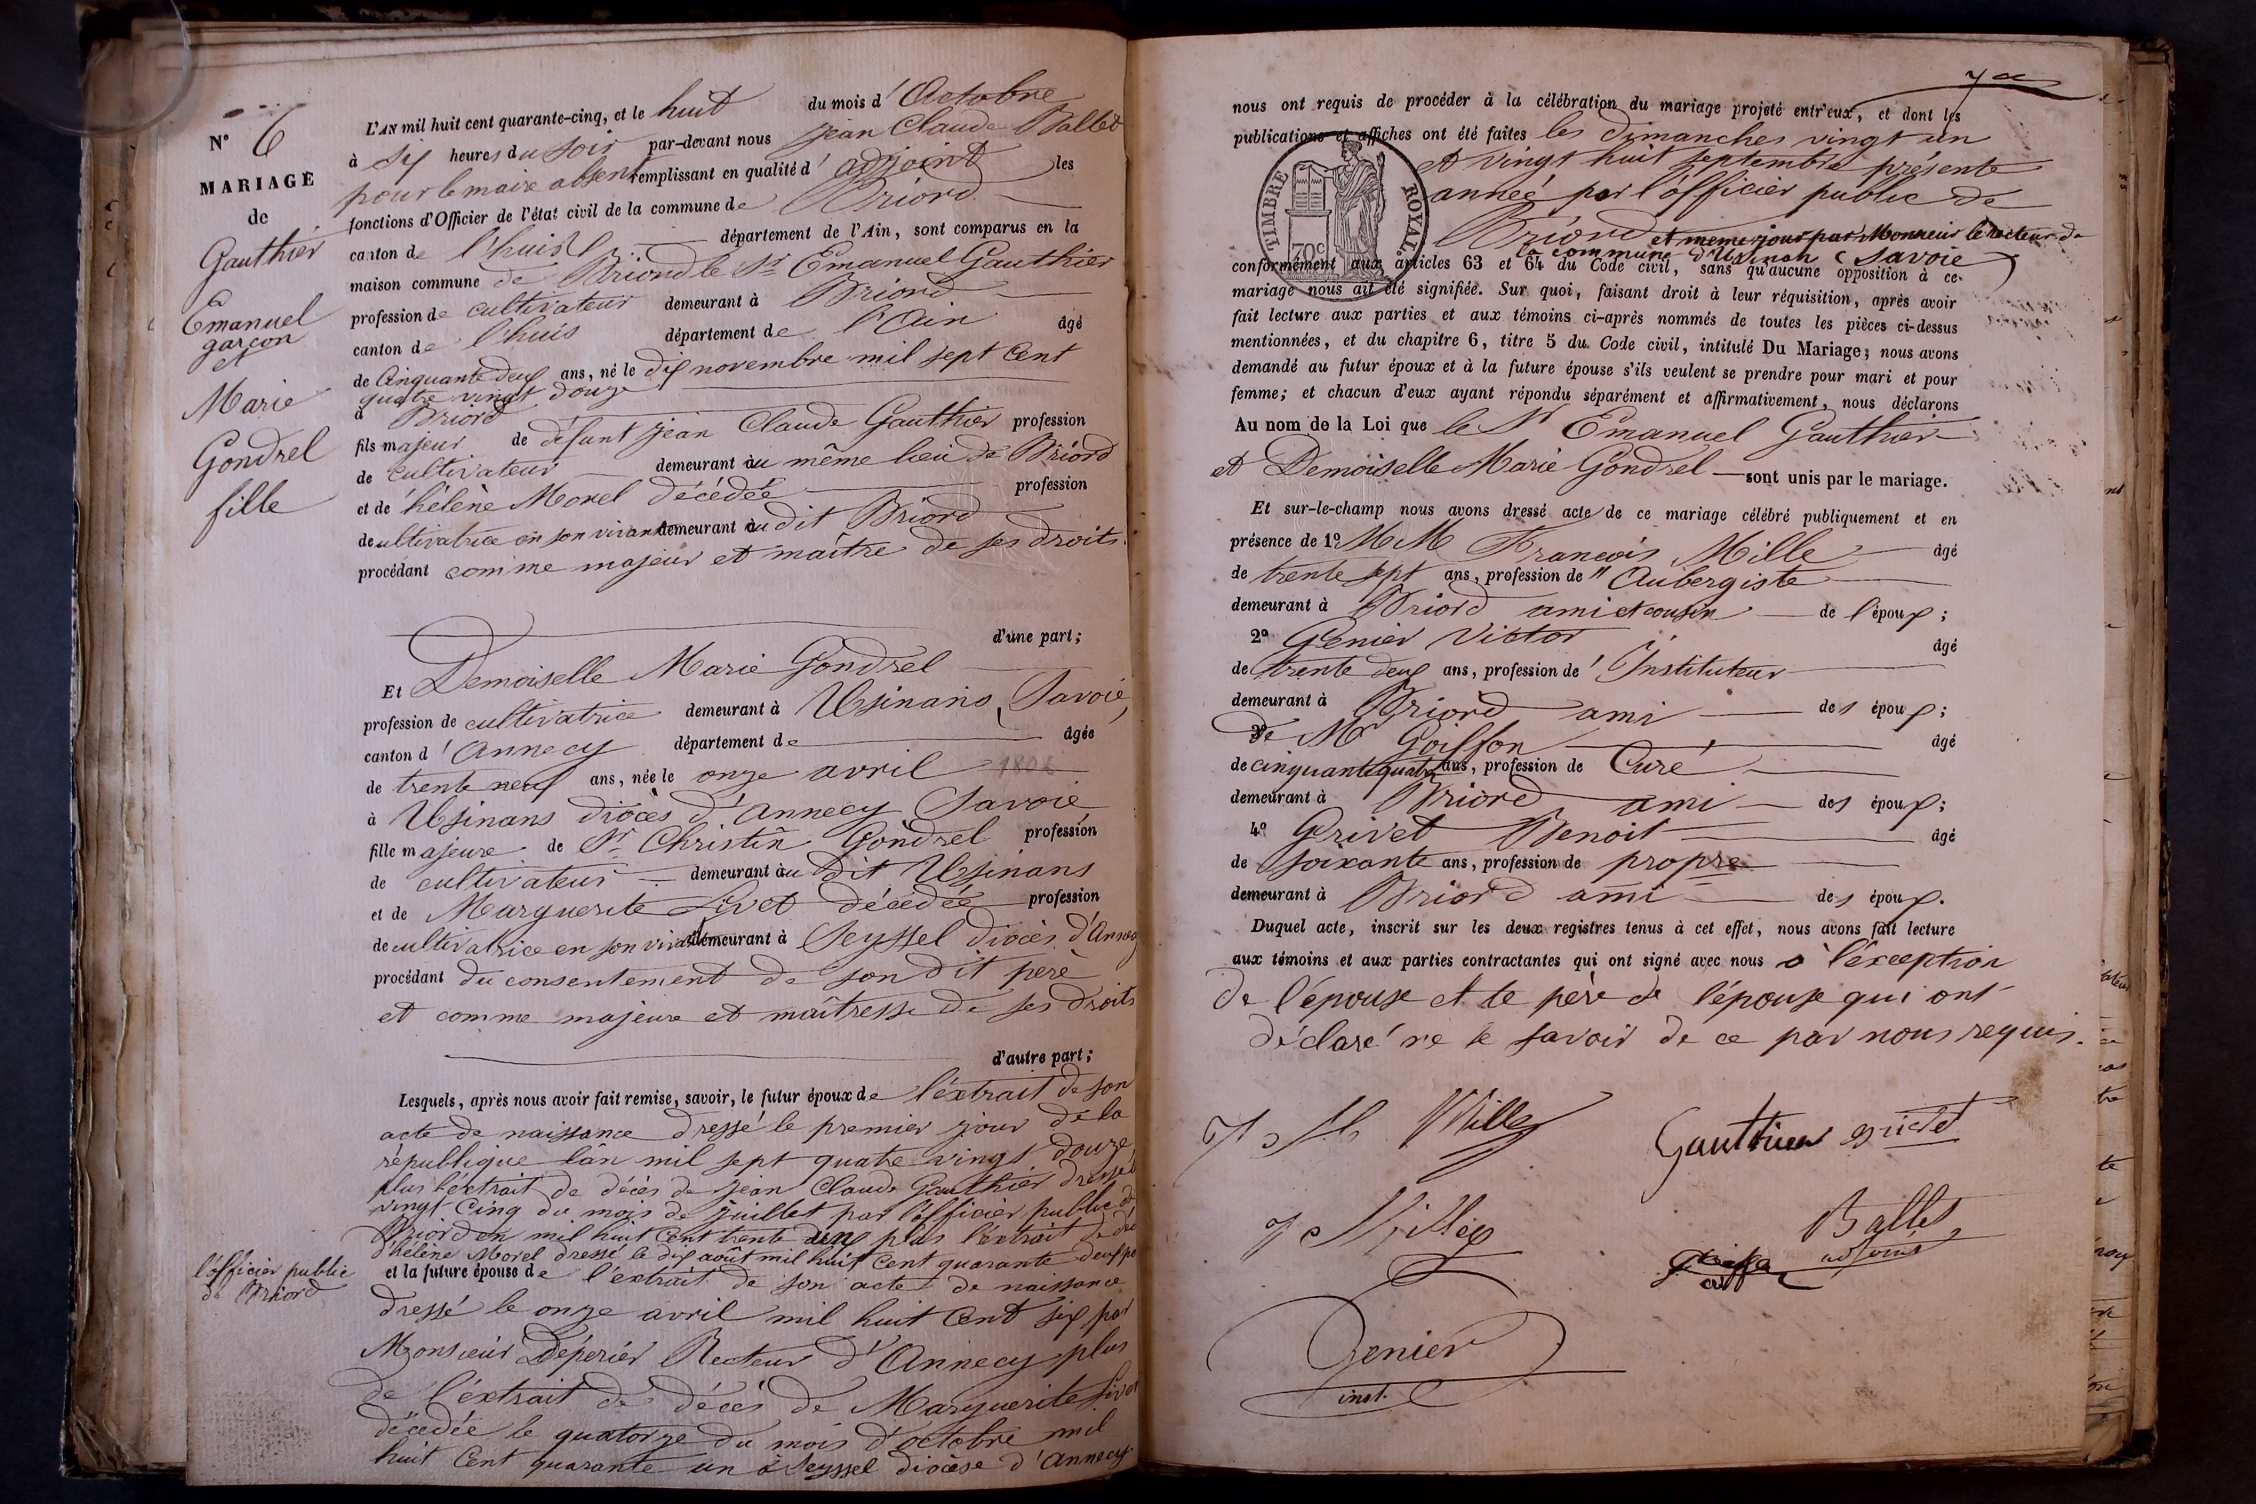 N° 6
MARIAGE
de
Gauthier
Emanuel
garçon
et
Marie
Gondrel
fille
L'AN mil huit cent quarante-cinq, et le huit du mois d'Octobre
à six heures du soir par-devant nous jean Claude Ballet
pour le maire absent remplissant en qualité d'adjoint les
fonctions d'Officier de l'état civil de la commune de Briord
canton de lhuis département de l'Ain, sont comparus en la
maison commune de Briord le Sr Emanuel Gauthier
profession de cultivateur demeurant à Briord
canton de lhuis département de l'Ain âgé
de Cinquante deux ans, né le dix novembre mil sept cent
quatre vingt douze
à Briord
fils majeur de défunt jean Claude Gauthier profession
de cultivateur demeurant au même lieu de Briord
et de hélène Morel décédée profession
de cultivatrice en son vivant demeurant au dit Briord
procédant comme majeur et maître de ses droits
d'une part;
Et Demoiselle Marie Gondrel
profession de cultivatrice demeurant à Usinans, Savoie,
canton d'annecy département de âgée
de trente neuf ans, née le onze avril 1806
à Usinans diocès d'annecy Savoie
fille majeure de Sr Christin Gondrel profession
de cultivateur demeurant au dit Usinans
et de Marguerite Livet décédée profession
de cultivatrice en son vivant demeurant à Seyssel diocès d'Annecy
procédant du consentement de son dit père
et comme majeure et maîtresse de ses droits
d'autre part;
Lesquels, après nous avoir fait remise, savoir, le futur époux de l'éxtrait de son
acte de naissance dressé le premier jour de la
république l'an mil sept quatre vingt douze
plus l'éxtrait de décès de jean Claude Gauthier dressé
vingt cinq du mois de juillet par l'officier public de
Briord en mil huit cent trente plus l'éxtrait de
d'hélène Morel dressé le dix août mil huit cent quarante deux par
l'officier public
de Briord
et la future épouse de l'éxtrait de son acte de naissance
dressé le onze avril mil huit cent six par
Monsieur Déperier Recteur d'Annecy plus
de l'éxtrait de décès de Marguerite Livet
décédée le quatorze du mois d'octobre mil
huit Cent quarante un à Seyssel diocèse d'annecy
nous ont requis de procéder à la célébration du mariage projeté entr'eux, et dont les
publications et affiches ont été faites les dimanches vingt un
et vingt huit septembre présente
année par l'officier public de
Briord et meme jour par Monsieur le recteur de
la commune d'Usinah (Savoie)
TIMBRE ROYAL
70c
conformément aux articles 63 et 64 du Code civil, sans qu'aucune opposition à ce
mariage nous ait été signifiée. Sur quoi, faisant droit à leur réquisition, après avoir
fait lecture aux parties et aux témoins ci-après nommés de toutes les pièces ci-dessus
mentionnées, et du chapitre 6, titre 5 du Code civil, intitulé Du Mariage; nous avons
demandé au futur époux et à la future épouse s'ils veulent se prendre pour mari et pour
femme; et chacun d'eux ayant répondu séparément et affirmativement, nous déclarons
Au nom de la Loi que le Sr Emanuel Gauthier
et Demoiselle Marie Gondrel sont unis par le mariage.
Et sur-le-champ nous avons dressé acte de ce mariage célébré publiquement et en
présence de 1° MM François Mille âgé
de trente sept ans, profession de Aubergiste
demeurant à Briord ami et cousin de l'époux;
2° Genier Victor âgé
de trente deux ans, profession d'Instituteur
demeurant à Briord ami des époux;
3° de Mr Goiffon âgé
de cinquante quatre ans, profession de Curé
demeurant à Briord ami des époux;
4° Grivet Benoit âgé
de soixante ans, profession de propre
demeurant à Briord ami des époux.
Duquel acte, inscrit sur les deux registres tenus à cet effet, nous avons fait lecture
aux témoins et aux parties contractantes qui ont signé avec nous à l'éxception
de l'épouse et le père de l'épouse qui ont
déclaré ne le savoir de ce par nous requis.
Mille
Gauthier grivet
Ballet
adjoint
Genier
inst.